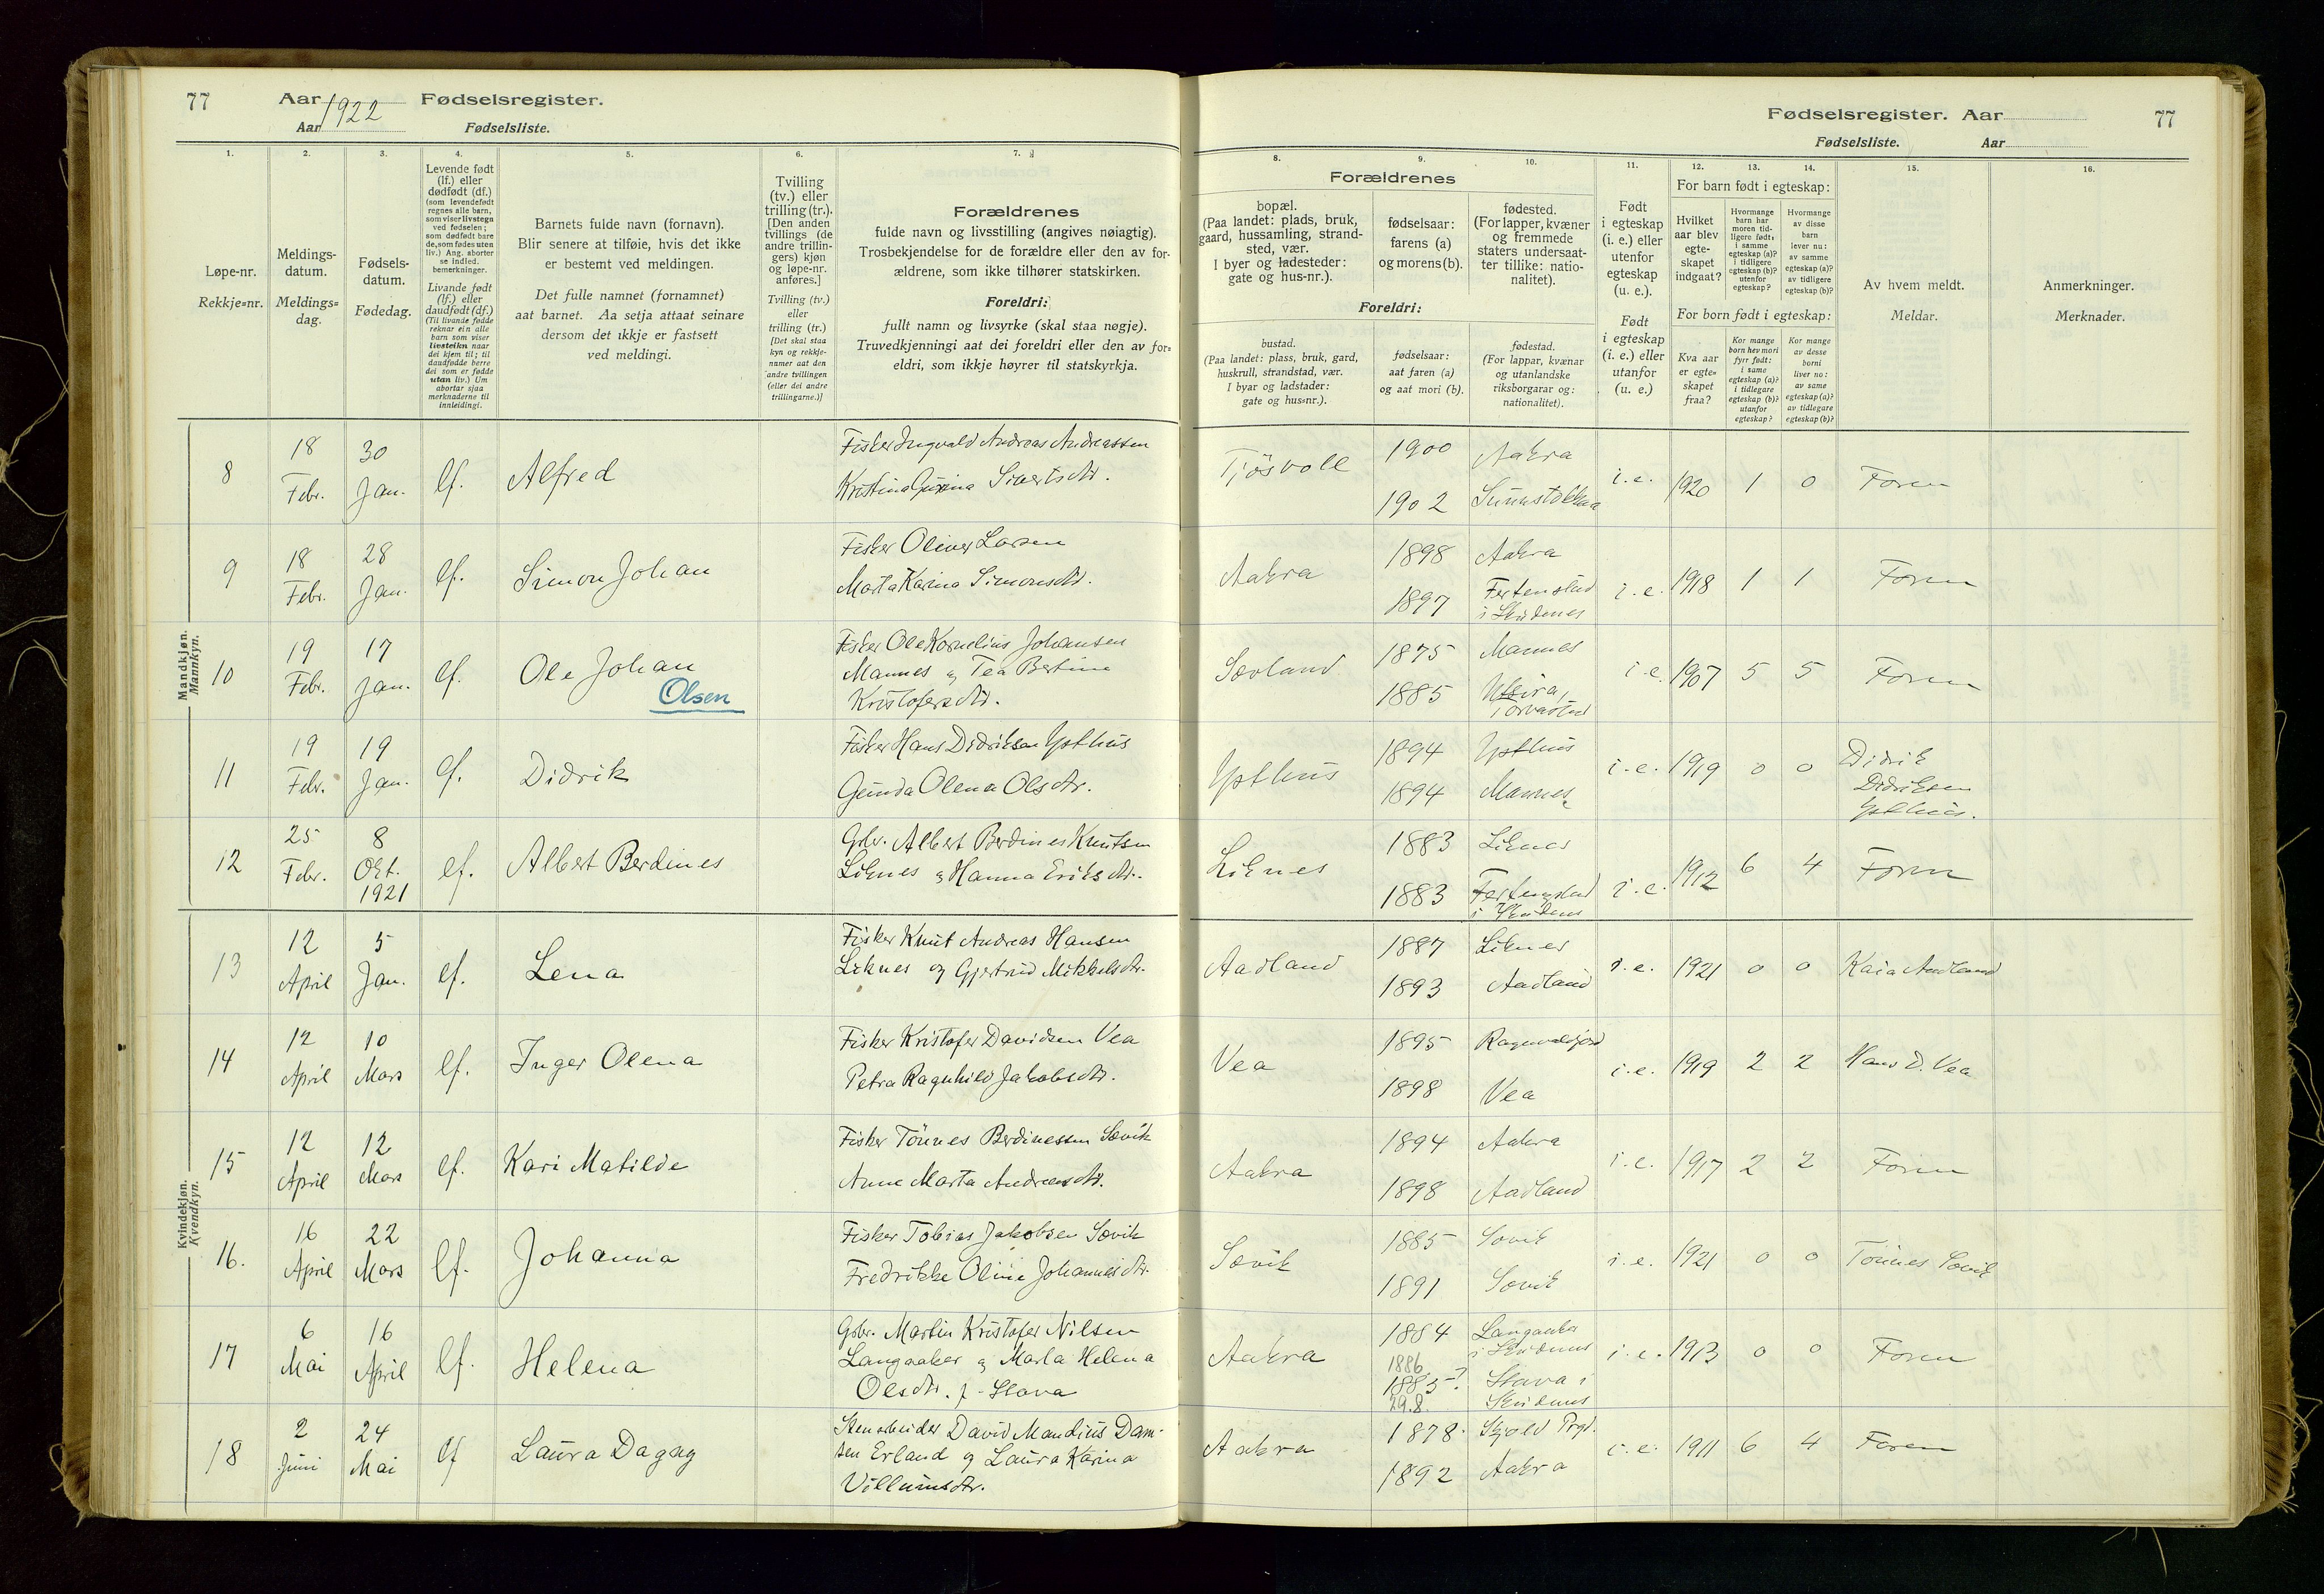 77 Aar 1922 Fødselsregister.
Aar Fødselsliste.
Fødselsregister. Aar 77
Fødselsliste. Aar
1. 2. 3. 4. 5. 6. 7.
Løpe-nr.
Rekkje=nr.
Meldings-
datum.
Meldings=
dag.
Fødsels-
datum.
Fødedag.
Levende født
(lf.) eller
dødfødt (df.)
(som levendefødt
regnes alle barn,
som viser livstegn
ved fødselen;
som dødfødt bare
de, som fødes uten
liv.) Ang. aborter
se indled.
bemerkninger.
Livande født
(lf.) eller
daudfødt (df.)
(Til livande fødde
reknar ein alle
barn som viser
livsteikn naar
dei kjem til; til
daudfødde berre
dei som er fødde
utan liv.) Um
abortar sjaa
merknaderne til
innleidingi.
Barnets fulde navn (fornavn).
Blir senere at tilføie, hvis det ikke
er bestemt ved meldingen.
Det fulle namnet (fornamnet)
aat barnet. Aa setja attaat seinare
dersom det ikkje er fastsett
ved meldingi.
Tvilling
(tv.) eller
trilling (tr.).
[Den anden
tvillings (de
andre trillin-
gers) kjøn
og løpe-nr.
anføres.]
Tvilling (tv.)
eller
trilling (tr.)
[Det skal staa
kyn og rekkje-
numer aat den
andre tvillingen
(eller dei andre
trillingarne.)]
Forældrenes
fulde navn og livsstilling (angives nøiagtig).
Trosbekjendelse for de forældre eller den av for-
ældrene, som ikke tilhører statskirken.
Foreldri:
fullt namn og livsyrke (skal staa nøgje).
Truvedkjenningi aat dei foreldri eller den av for=
eldri, som ikkje høyrer til statskyrkja.
8. 9. 10. 11. 12. 13. 14. 15. 16.
Forældrenes
bopæl.
(Paa landet: plads, bruk,
gaard, hussamling, strand-
sted, vær.
I byer og ladesteder:
gate og hus-nr.).
fødselsaar:
farens (a)
og morens (b).
fødested.
(For lapper, kvæner
og fremmede
staters undersaat-
ter tillike: natio-
nalitet).
Foreldri:
bustad.
(Paa landet: plass, bruk, gard,
huskrull, strandstad, vær.
I byar og ladstader:
gate og hus=nr.).
fødselsaar:
aat faren (a)
og aat mori (b).
fødestad.
(For lappar, kvænar
og utanlandske
riksborgarar og:
nationalitet).
Født
i egteskap
(i. e.) eller
utenfor
egteskap
(u. e.).
Født
i egteskap
(i. e.) eller
utanfor
(u. e.)
For barn født i egteskap:
Hvilket
aar blev
egte-
skapet
indgaat?
Hvormange
barn har
moren tid-
ligere født:
i samme
egteskap (a)?
i tidligere
egteskap (b)?
utenfor
egteskap?
Hvormange
av disse
barn
lever nu:
av samme
egteskap (a)?
av tidligere
egteskap (b)?
For born født i egteskap:
Kva aar
er egte=
skapet
fraa?
Kor mange
born hev mori
fyrr født:
i same
egteskap (a)?
i tidlegare
egteskap (b)?
utanfor
egteskap?
Kor mange
av desse
borni
liver no:
av same
egteskap (a)?
av tidlegare
egteskap (b)?
Av hvem meldt.
Meldar.
Anmerkninger.
Merknader.
Mandkjøn.
Mankyn.
8 18 Febr. 30 Jan. lf. Alfred
Fisker Ingvald Andreas Andreassen
Kristina Gurina Sivertsdtr.
Tjøsvoll 1900 Aakra
1902 i.e. 1920 1 0 Faren
9 18 Febr. 28 Jan. lf. Simon Johan
Fisker Oliver Larsen
Marta Karina Simonsdtr.
Aakra 1898 Aakra
1897 Ferkenstad
i Skudenes i.e. 1918 1 1 Faren
10 19 Febr. 17 Jan. lf. Ole Johan
Olsen
Fisker Ole Kornelius Johansen
Mannes og Tea Bertine
Kristofersdtr.
Sævland 1875 Mannes
1885 Utsira,
Torvastad i.e. 1907 5 5 Faren
11 19 Febr. 19 Jan. lf. Didrik
Fisker Hans Didriksen Ysthus
Gunda Olena Olsdtr.
Ysthus 1894 Ysthus
1894 Mannes i.e. 1919 0 0 Didrik
Didriksen
Ysthus.
12 25 Febr. 8 Okt. 1921 lf. Albert Berdines
Gbr. Albert Berdines Knutsen
Liknes og Hanna Eriksdtr.
Liknes 1883 Liknes
1883 Ferkenstad
i Skudenes i.e. 1912 6 4 Faren
Kvindekjøn.
Kvendkyn.
13 12 April 5 Jan. lf. Lena
Fisker Knut Andreas Hansen
Liknes og Gjertrud Mikkelsdtr.
Aadland 1887 Liknes
1893 Aadland i.e. 1921 0 0 Kaia Aadland
14 12 April 10 Mars lf. Inger Olena
Fisker Kristofer Davidsen Vea
Petra Ragnhild Jakobsdtr.
Vea 1895 Ragnvaldsjord
1898 Vea i.e. 1919 2 2 Hans D. Vea
15 12 April 12 Mars lf. Kari Matilde
Fisker Tönnes Berdinessen Sævik
Anne Marta Andreasdtr.
Aakra 1894 Aakra
1898 Aadland i.e. 1917 2 2 Faren
16. 16 April 22 Mars lf. Johanna
Fisker Tobias Jakobsen Sævik
Fredrikke Oline Johannesdtr.
Sævik 1885 Sævik
1891 Sævik i.e. 1921 0 0 Tönnes Sævik
17 6 Mai 16 April lf. Helena
Gbr. Martin Kristofer Nilsen
Langaaker og Marta Helena
Olsdtr. f. Stava
Aakra 1884 Langaaker
i Skudenes
1886
1885? Stava i
29.8. Skudenes i.e. 1913 0 0 Faren
18 2 Juni 24 Mai lf Laura Dagny
Stenarbeider David Mandius Dam-
sen Erland og Laura Karina
Villumsdtr.
Aakra 1878. Skjold Prgd.
1892 Aakra i.e. 1911 6 4 Faren